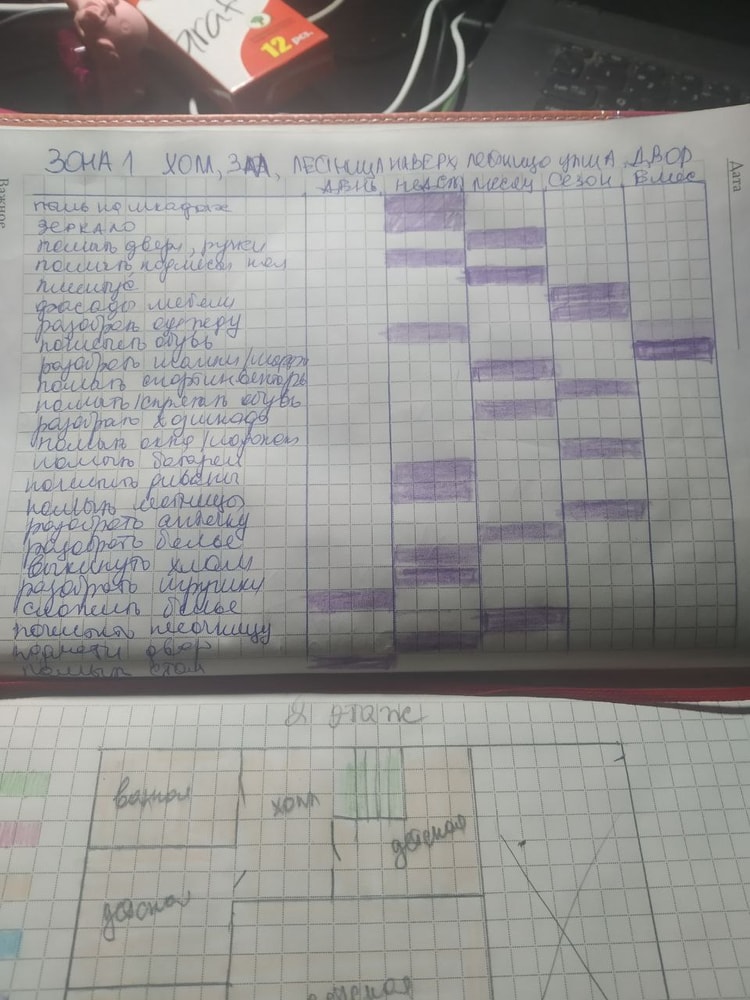 Graf
12 pcs.
Дата
Важное
ЗОНА 1 ХОЛЛ, ЗАЛ, ЛЕСТНИЦА НАВЕРХ, ЛЕСТНИЦА УЛИЦА, ДВОР
ДЕНЬ НЕДЕЛ МЕСЯЦ СЕЗОН 6 мес
пыль на шкафах
зеркало
помыть двери, ручки
помыть подмести пол
плинтус
фасады мебели
разобрать одежду
почистить обувь
разобрать шапки/шарфы
помыть спортинвентарь
помыть/спрятать обувь
разобрать
помыть окна/
помыть батареи
почистить диваны
помыть лестницы
разобрать аптечку
разобрать белье
выкинуть хлам
разобрать игрушки
сложить белье
почистить песочницу
подмести двор
помыть стол
2 этаж
ванная
холл
детская
детская